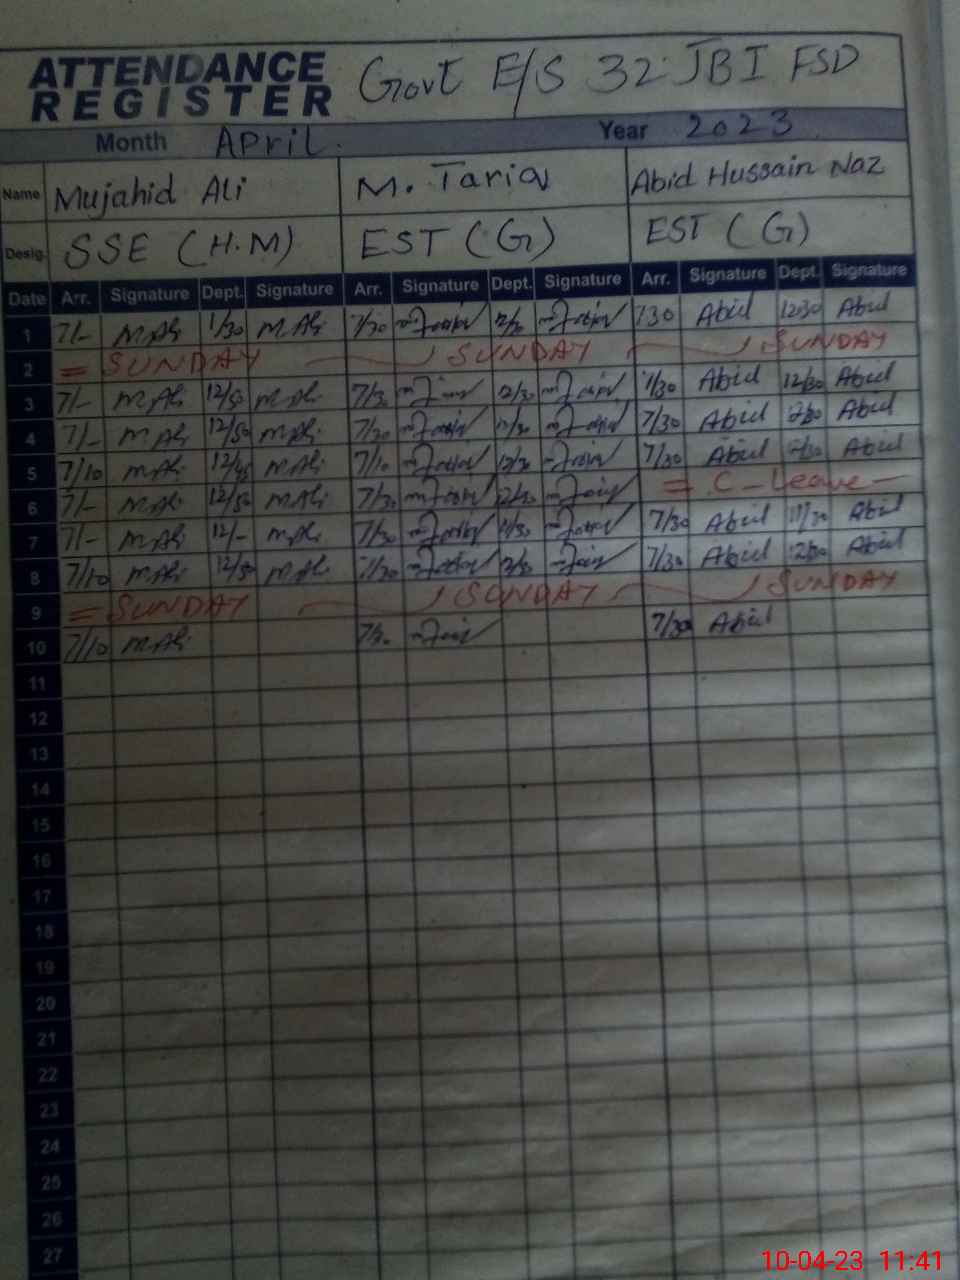 ATTENDANCE REGISTER Govt E/S 32 JBI FSD
Month April. Year 2023
Name Mujahid Ali M. Tariq Abid Hussain Naz
Desig. SSE (H.M) EST (G) EST (G)
Date Arr. Signature Dept. Signature Arr. Signature Dept. Signature Arr. Signature Dept. Signature
1 7/- M Ali 1/30 M Ali 7/30 730 Abid 1230 Abid
2 = SUNDAY SUNDAY SUNDAY
3 7/- M Ali 12/50 M Ali 7/30 12/30 7/30 Abid 12/30 Abid
4 7/- M Ali 12/50 M Ali 7/30 7/30 Abid Abid
5 7/10 M Ali 12/45 M Ali 7/10 12/30 7/30 Abid Abid
6 7/- M Ali 12/50 M Ali 7/30 12/30 = C - Leave -
7 7/- M Ali 12/- M Ali 7/30 11/30 7/30 Abid 11/30 Abid
8 7/10 M Ali 12/50 M Ali 7/30 7/30 Abid Abid
9 = SUNDAY SUNDAY SUNDAY
10 7/10 M Ali 7/30 Abid
11
12
13
14
15
16
17
18
19
20
21
22
23
24
25
26
27
10-04-23 11:41